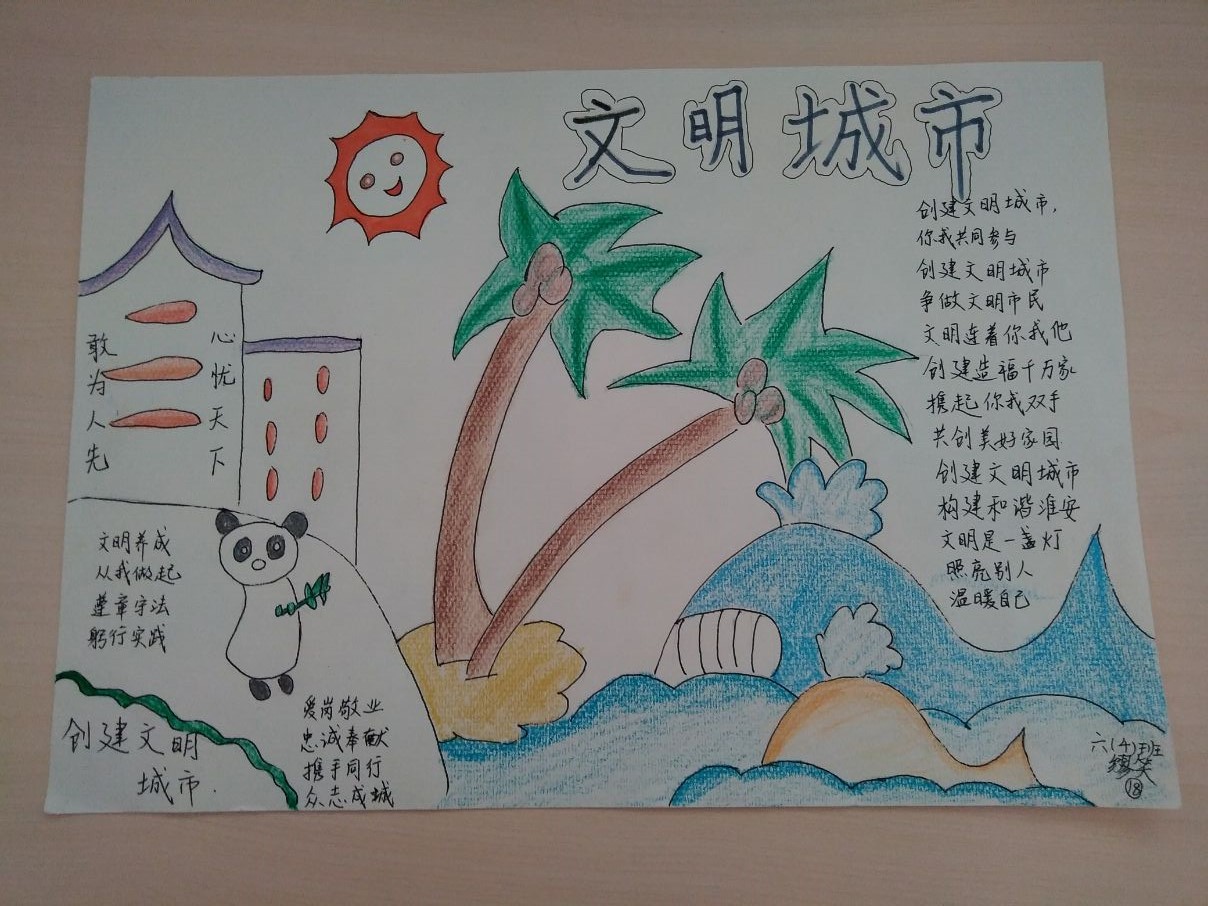 文明城市
创建文明城市，
你我共同参与
创建文明城市
争做文明市民
文明连着你我他
创建造福千万家
携起你我双手
共创美好家园
创建文明城市
构建和谐淮安
文明是一盏灯
照亮别人
温暖自己
敢为人先
心忧天下
文明养成
从我做起
遵章守法
躬行实践
创建文明
城市.
爱岗敬业
忠诚奉献
携手同行
众志成城
六(4)班
缪笑
⑱